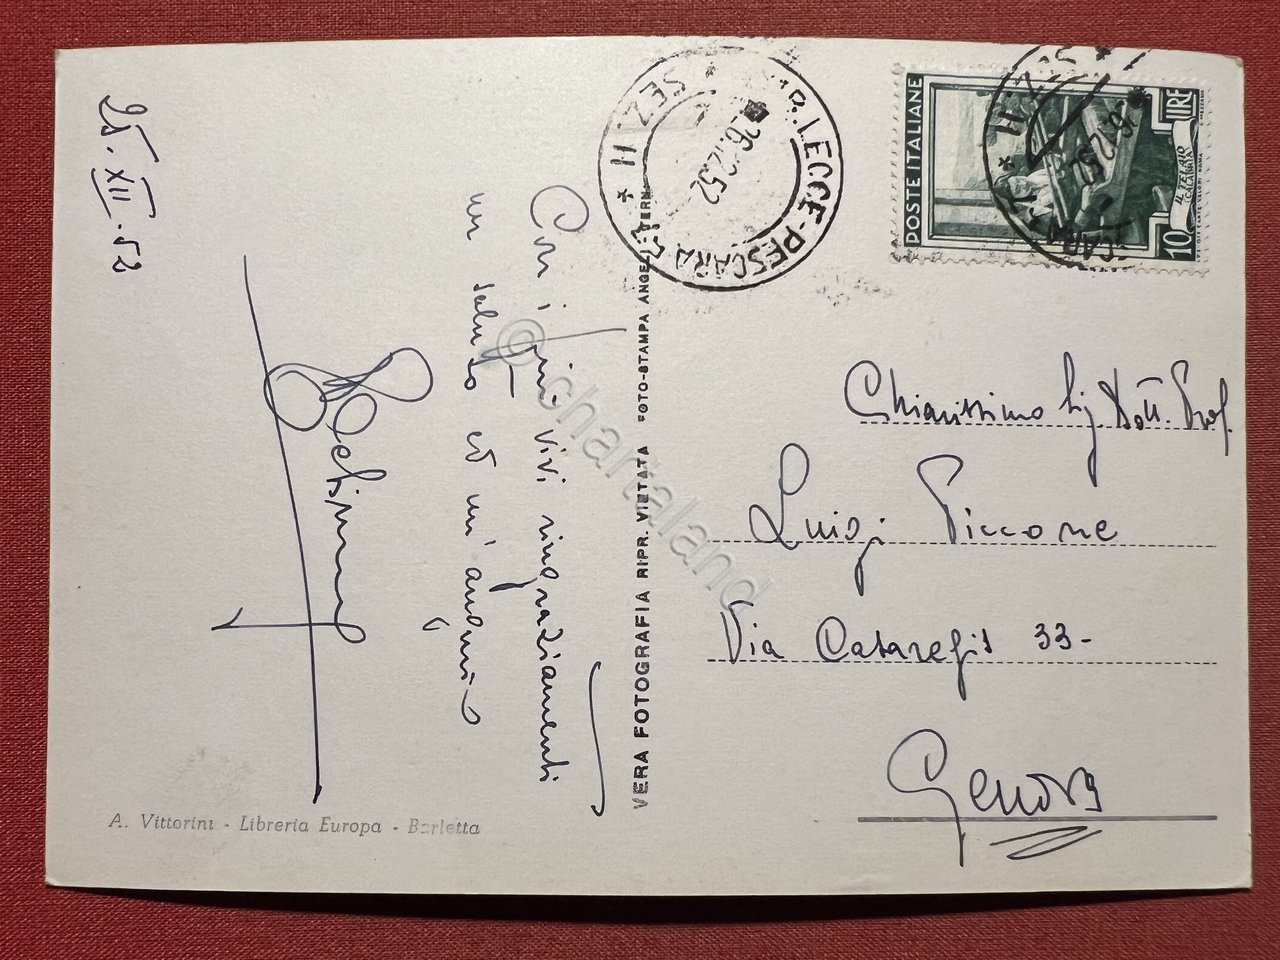 25.XII.52
Con i più vivi ringraziamenti
un saluto ed un augurio
A. Vittorini - Libreria Europa - Barletta
VERA FOTOGRAFIA RIPR. VIETATA FOTO-STAMPA ANGELI TERNI
LECCE-PESCARA * SEZ. II *
26.12.52
POSTE ITALIANE
10 LIRE
IL TELAIO
CALABRIA
Chiarissimo Sig. Dott. Prof.
Luigi Piccone
Via Casaregis 33-
Genova
© chartaland